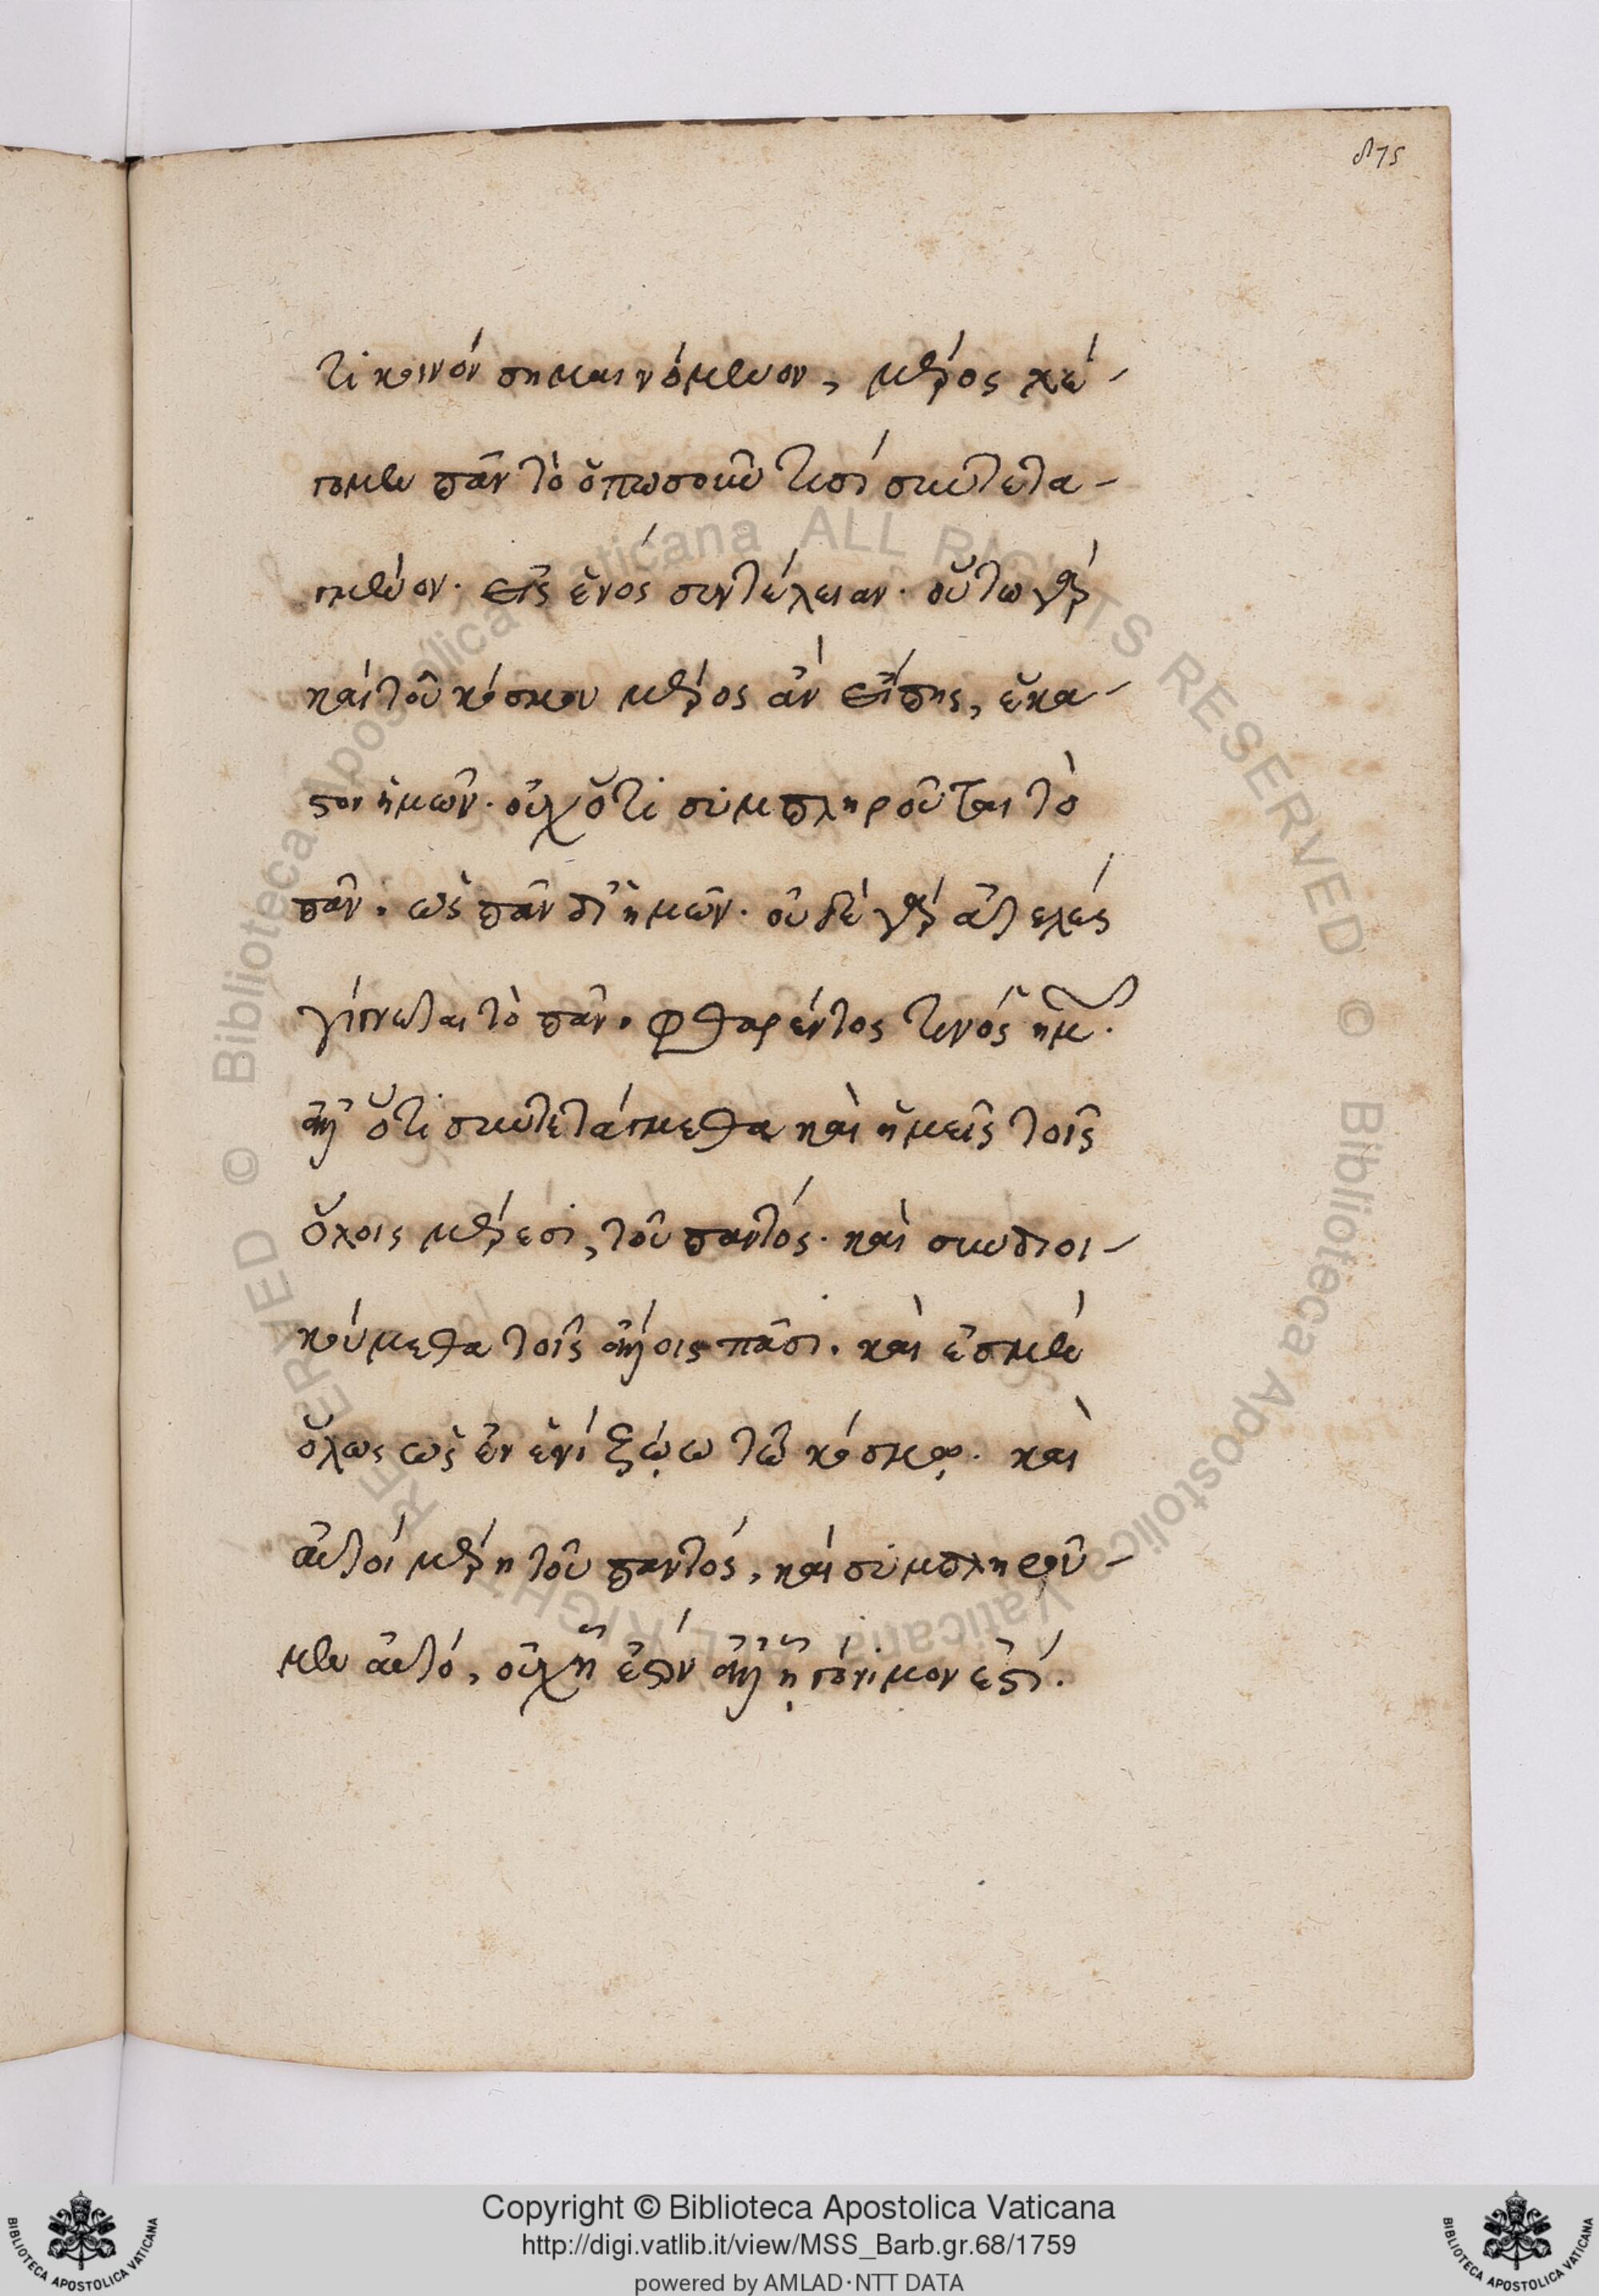 875
τὶ κοινὸν σημαινόμενον, μέρος λέ-
γομεν πᾶν τὸ ὁπωσοῦν τισὶ συντετα-
γμένον· εἰς ἑνὸς συντέλειαν· οὕτω γὰρ
καὶ τοῦ κόσμου μέρος ἂν εἴπης, ἕκα-
στον ἡμῶν· οὐχ ὅτι συμπληροῦται τὸ
πᾶν· ὡς πᾶν δι' ἡμῶν· οὐδὲ γὰρ ἀτελὲς
γίγνεται τὸ πᾶν· φθαρέντος τινὸς ἡμῶν·
ἀλλ' ὅτι συντετάγμεθα καὶ ἡμεῖς τοῖς
ὅλοις μέρεσι, τοῦ παντός· καὶ συνδιοι-
κούμεθα τοῖς ἄλλοις πᾶσι· καὶ ἐσμὲν
ὅλως ὡς ἐν ἑνὶ ζώῳ τῷ κόσμῳ· καὶ
αὐτοὶ μέρη τοῦ παντός, καὶ συμπληροῦ-
μεν αὐτό, οὐχ ᾗ ἔστιν ἀλλ' ᾗ γόνιμον ἐστί.
Copyright © Biblioteca Apostolica Vaticana
http://digi.vatlib.it/view/MSS_Barb.gr.68/1759
powered by AMLAD·NTT DATA
BIBLIOTECA APOSTOLICA VATICANA
BIBLIOTECA APOSTOLICA VATICANA
© Biblioteca Apostolica Vaticana ALL RIGHTS RESERVED © Biblioteca Apostolica Vaticana ALL RIGHTS RESERVED